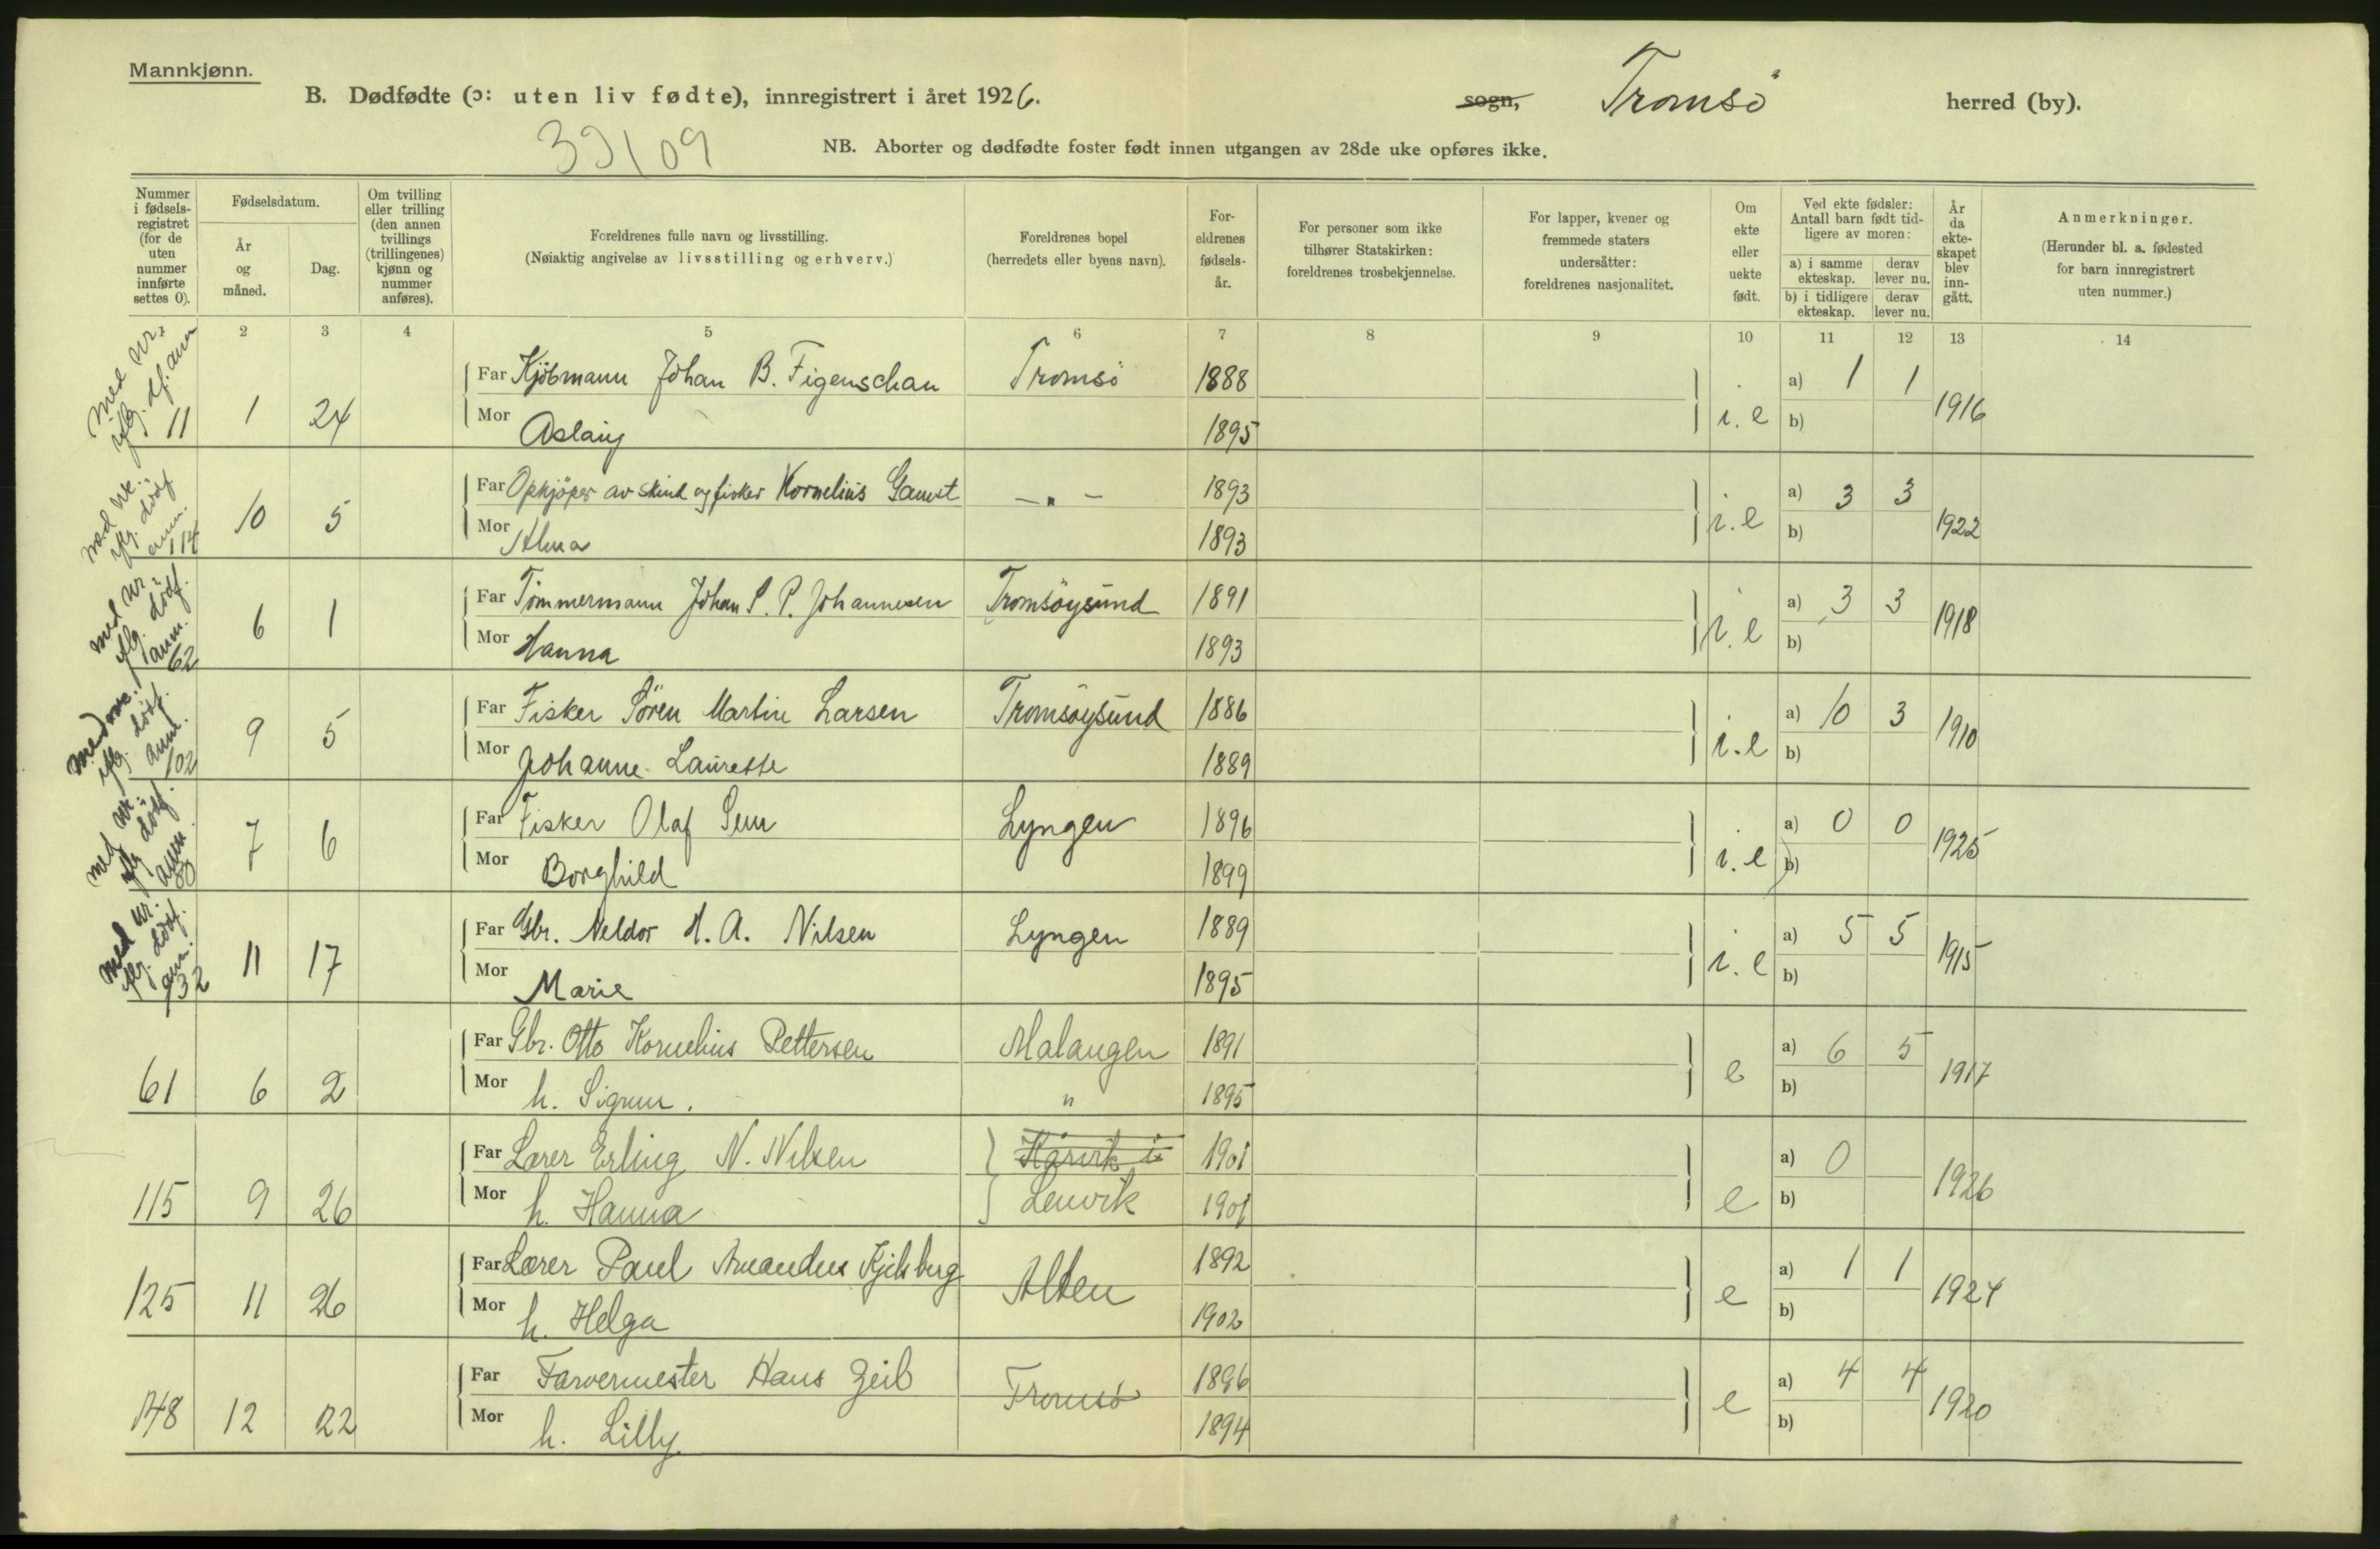 Mannkjønn.
B. Dødfødte (ɔ: uten liv fødte), innregistrert i året 1926. sogn, Tromsø herred (by).
39109
NB. Aborter og dødfødte foster født innen utgangen av 28de uke opføres ikke.
Nummer i fødsels-registret (for de uten nummer innførte settes 0).
Fødselsdatum.
År og måned.
Dag.
Om tvilling eller trilling (den annen tvillings (trillingenes) kjønn og nummer anføres).
Foreldrenes fulle navn og livsstilling.
(Nøiaktig angivelse av livsstilling og erhverv.)
Foreldrenes bopel
(herredets eller byens navn).
For-eldrenes fødsels-år.
For personer som ikke tilhører Statskirken: foreldrenes trosbekjennelse.
For lapper, kvener og fremmede staters undersåtter: foreldrenes nasjonalitet.
Om ekte eller uekte født.
Ved ekte fødsler: Antall barn født tid-ligere av moren:
a) i samme ekteskap. derav lever nu.
b) i tidligere ekteskap. derav lever nu.
År da ekte-skapet blev inn-gått.
Anmerkninger.
(Herunder bl. a. fødested for barn innregistrert uten nummer.)
1 2 3 4 5 6 7 8 9 10 11 12 13 14
med nr. iflg. df. anm 11 1 24 Far Kjøbmann Johan B. Figenschau Tromsø 1888 i. e a) 1 1 1916
Mor Aslaug 1895 b)
med nr. iflg. dødf anm. 114 10 5 Far Opkjøper av skind og fisker Kornelius Gamst — " — 1893 i. e a) 3 3 1922
Mor Alma 1893 b)
med nr. iflg. dødf. anm. 62 6 1 Far Tømmermann Johan S. P. Johannesen Tromsøysund 1891 i. e a) 3 3 1918
Mor Hanna 1893 b)
med nr. iflg. dødf. anm. 102 9 5 Far Fisker Søren Martin Larsen Tromsøysund 1886 i. e a) 10 3 1910
Mor Johanne Laurette 1889 b)
med nr. iflg. dødf. anm. 80 7 6 Far Fisker Olaf Lyngen 1896 i. e a) 0 0 1925
Mor Borghild 1899 b)
med nr. iflg. dødf. anm. 132 11 17 Far Gbr. Neldor H. A. Nilsen Lyngen 1889 i. e a) 5 5 1915
Mor Marie 1895 b)
61 6 2 Far Gbr. Otto Kornelius Pettersen Malangen 1891 e a) 6 5 1917
Mor h. Sigrun. " 1895 b)
115 9 26 Far Lærer Erling N. Nilsen Kårvik i 1901 e a) 0 1926
Mor h. Hanna Lenvik 1901 b)
125 11 26 Far Lærer Paul Amandus Kjelsberg Alten 1892 e a) 1 1 1924
Mor h. Helga 1902 b)
148 12 22 Far Farvermester Hans Zeib Tromsø 1896 e a) 4 4 1920
Mor h. Lilly 1894 b)